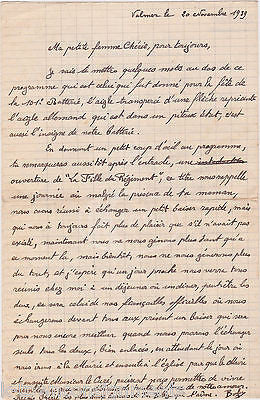 Valmer le 20 Novembre 1939
Ma petite femme Chérie, pour toujours,
Je vais te mettre quelques mots au dos de ce
programme qui est celui que fut donné pour la fête de
la 101e Batterie, l'aigle transpercé d'une flèche représente
l'aigle allemand qui est dans un piteux état, c'est
aussi l'insigne de notre batterie.
En donnant un petit coup d'œil au programme,
tu remarqueras aussitôt après l'entracte, une
ouverture de "La Fille du Régiment" ce titre nous rappelle
une journée où malgré la présence de ta maman,
nous avons réussi à échanger un petit baiser rapide, mais
qui nous a toujours fait plus de plaisir que s'il n'avait pas
existé, maintenant nous ne nous gênons plus tant qu'à
ce moment là, mais bientôt, nous ne nous gênerons plus
du tout, et j'espère qu'un jour proche nous verra tous
réunis chez moi à un déjeuner ou un dîner, peut être les
deux, ce sera celui de nos fiançailles officielles où nous
échangerons devant tous un doux baiser qui ne sera pas
pour nous encore meilleur quand nous pourrons l'échanger
seuls tous les deux, bien enlacés, en attendant le jour où
nous irons à la Mairie et ensuite à l'église pour que le Maire
et ensuite Monsieur le Curé, puissent nous permettre de vivre